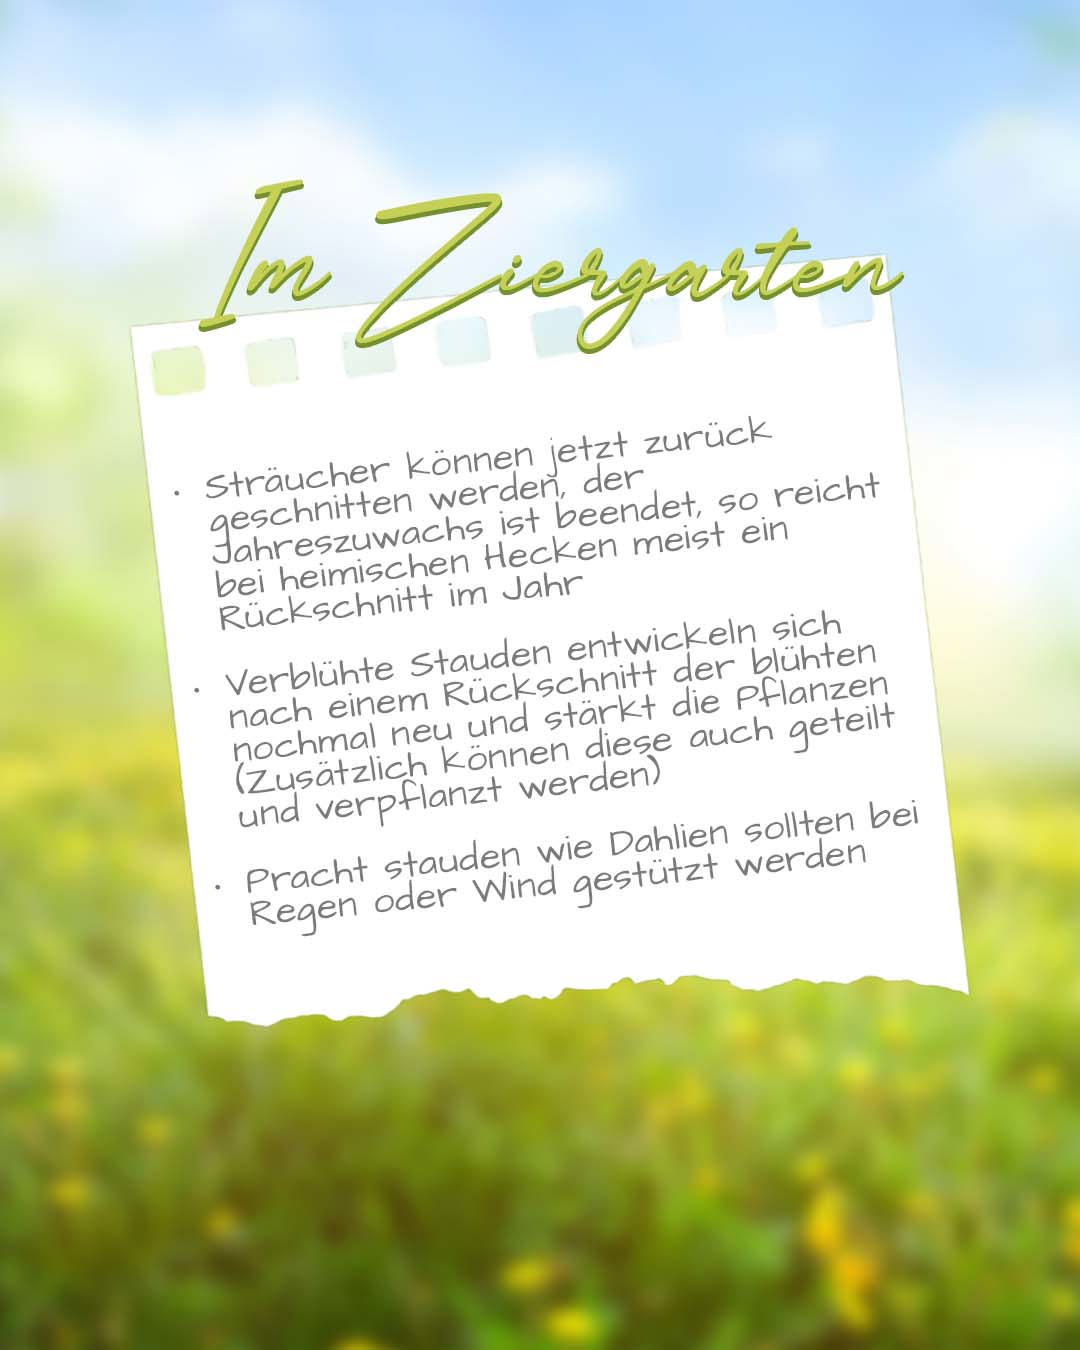 Im Ziergarten
• Sträucher können jetzt zurück
geschnitten werden, der
Jahreszuwachs ist beendet, so reicht
bei heimischen Hecken meist ein
Rückschnitt im Jahr
• Verblühte Stauden entwickeln sich
nach einem Rückschnitt der blühten
nochmal neu und stärkt die Pflanzen
(Zusätzlich können diese auch geteilt
und verpflanzt werden)
• Pracht stauden wie Dahlien sollten bei
Regen oder Wind gestützt werden